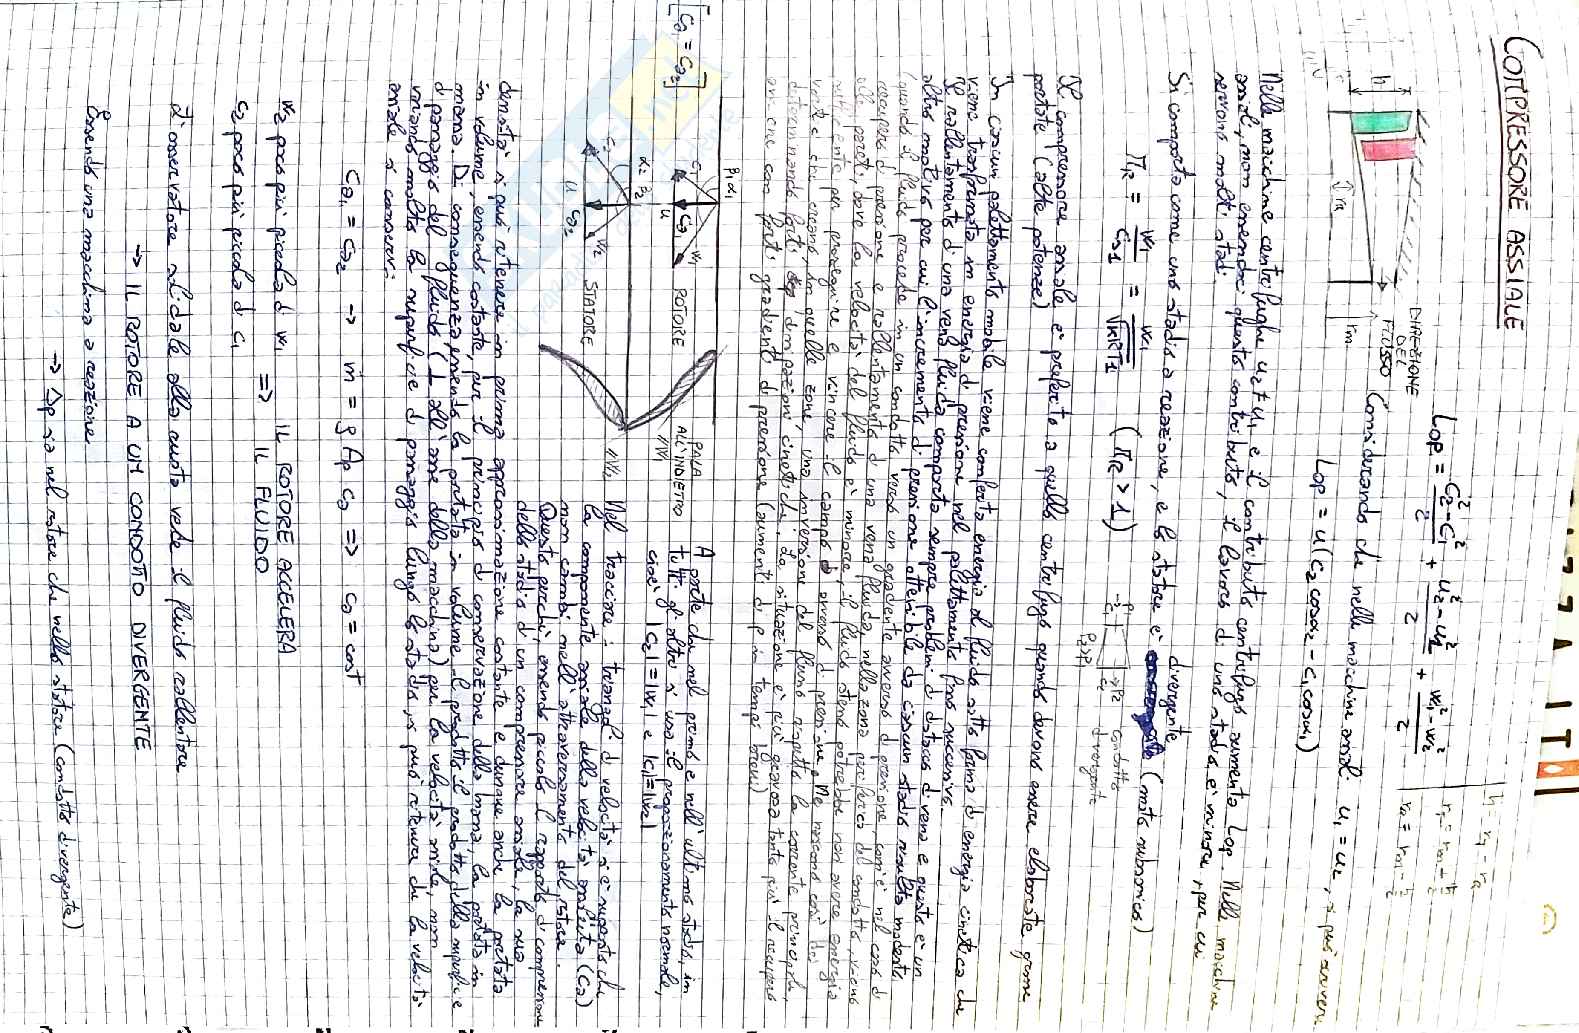 COMPRESSORE ASSIALE
h = rq - ra
rq = rm + h/2
ra = rm - h/2
DIREZIONE
DEL
FLUSSO
h
ra
rm
Lop = (c2² - c1²)/2 + (u2² - u1²)/2 + (w1² - w2²)/2
Considerando che nelle macchine assiali u1 = u2, si può scrivere:
Lop = u (c2 cosα2 - c1 cosα1)
Nelle macchine centrifughe u2 ≠ u1 e il contributo centrifugo aumenta Lop. Nelle macchine
assiali, non essendoci questo contributo, il lavoro di uno stadio è minore, per cui
servono molti stadi.
Si comporta come uno stadio a reazione, e lo statore è divergente (moto subsonico)
= w1/cs1 = w1/√kRT1
P1
→ c1
→ P2
c2
P2>P1
condotto
divergente
Il compressore assiale è preferito a quello centrifugo quando devono essere elaborate grosse
portate (alte potenze)
In ciascun palettamento mobile viene conferita energia al fluido sotto forma di energia cinetica che
viene trasformata in energia di pressione nel palettamento fisso successivo.
Il rallentamento di una vena fluida comporta sempre problemi di distacco di vena e questo è un
altro motivo per cui l'incremento di pressione ottenibile da ciascun stadio risulta modesto
(quando il fluido procede in un condotto verso un gradiente avverso di pressione, com'è nel caso di
recupero di pressione e rallentamento di una vena fluida, nella zona periferica del condotto, vicino
alle pareti, dove la velocità del fluido è minore, il fluido stesso potrebbe non avere energia
sufficiente per proseguire e vincere il campo avverso di pressione. Ne nascono così dei
vortici che creano, in quelle zone, una inversione del flusso rispetto la corrente principale,
determinando forti dissipazioni cinetiche. La situazione è più gravosa tanto più il recupero
avviene con forti gradienti di pressione (aumenti di p in tempi brevi)
[ca1 = ca2]
β1 α1
c1
ca1
w1
u
ROTORE
α2 β2
c2
ca2
w2
u
STATORE
PALA
ALL'INDIETRO
// w1
// w2
A parte che nel primo e nell'ultimo stadio, in
tutti gli altri si usa il proporzionamento normale,
cioè: |c2| = |w1| e |c1| = |w2|
Nel tracciare i triangoli di velocità si è supposto che
la componente assiale della velocità assoluta (ca)
non cambi nell'attraversamento del rotore.
Questo perché, essendo piccolo il rapporto di compressione
dello stadio di un compressore assiale, la sua
densità si può ritenere in prima approssimazione costante e dunque anche la portata
in volume, essendo costante, per il principio di conservazione della massa, la portata in
massa. Di conseguenza, essendo la portata in volume il prodotto della superficie
di passaggio del fluido (⊥ all'asse della macchina) per la velocità assiale, non
variando molto la superficie di passaggio lungo lo stadio, si può ritenere che la velocità
assiale si conservi:
ca1 = ca2 → ṁ = ρ Ap ca ⇒ ca = cost
w2 poco più piccola di w1 ⇒ IL ROTORE ACCELERA
c2 poco più piccola di c1 IL FLUIDO
L'osservatore solidale alla ruota vede il fluido rallentare
→ IL ROTORE È UN CONDOTTO DIVERGENTE
Essendo una macchina a reazione
→ Δp sia nel rotore che nello statore (condotto divergente)